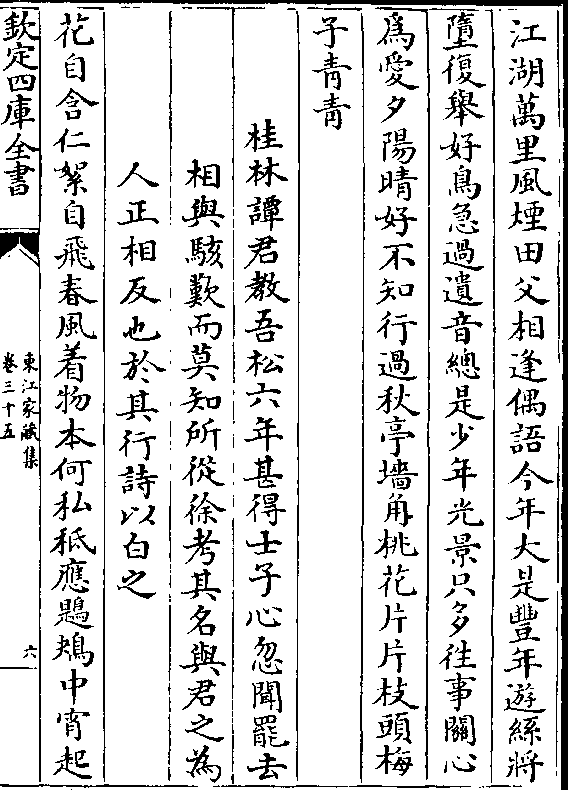 江湖萬里風煙田父相逢偶語今年大是豐年遊絲將
墮復舉好鳥急過遺音總是少年光景只多徃事關心
爲愛夕陽晴好不知行過秋亭墻角桃花片片枝頭梅
子青青
桂林譚君教吾松六年甚得士子心忽聞罷去
相與駭歎而莫知所從徐考其名與君之為
人正相反也於其行詩以白之
花自含仁絮自飛春風着物本何私秪應鶗鴂中宵起
欽定四庫全書
東江家藏集
卷三十五
六